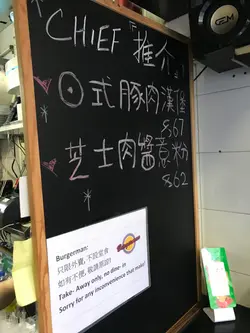 CHIEF「推介」
日式豚肉漢堡
$67
芝士肉醬意粉
$62
Burgerman:
只限外賣, 不設堂食
如有不便, 敬請原諒!
Take- Away only, no dine- in
Sorry for any inconvenience that make!